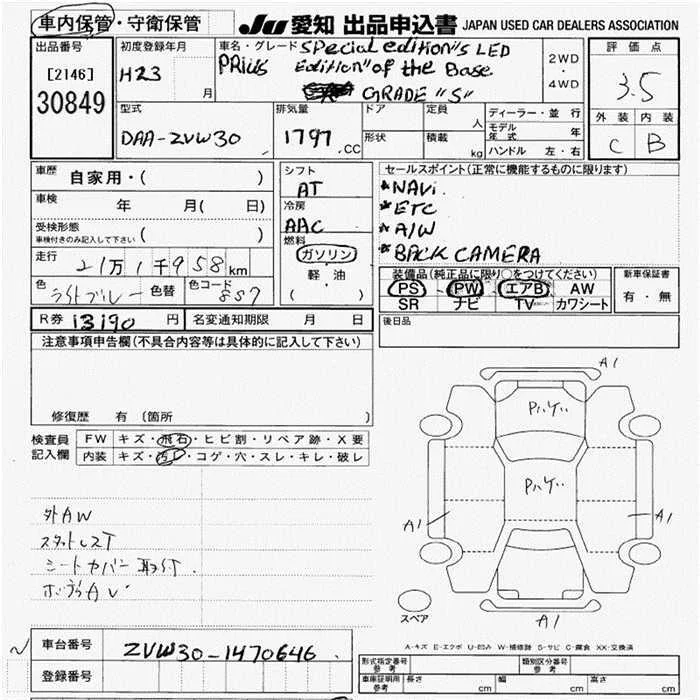 車内保管・守衛保管
JU 愛知 出品申込書 JAPAN USED CAR DEALERS ASSOCIATION
出品番号
[2146]
30849
初度登録年月
H23 月
車名・グレード Special edition "S LED
PRiUS Edition" of the Base
GRADE "S"
2WD
・
4WD
評価点
3.5
外装 内装
C B
型式
DAA-ZVW30
排気量
1797 .CC
ドア
形状
定員
人
積載
kg
ディーラー・並行
モデル年式 年
ハンドル 左・右
車歴 自家用・( )
車検 年 月( 日)
受検形態
車検付きのみ記入して下さい ( )
走行 21万1千958km
色 ライトブルー 色替 色コード 8S7
R券 13190 円 名変通知期限 月 日
シフト
AT
冷房
AAC
燃料
ガソリン
軽・油
( )
セールスポイント(正常に機能するものに限ります)
*NAVi.
*ETC
*A/W
*BACK CAMERA
装備品(純正品に限り○をつけてください)
PS PW エアB AW
SR ナビ TV カワシート
新車保証書
有・無
後日品
注意事項申告欄(不具合内容等は具体的に記入して下さい)
修復歴 有(箇所 )
検査員
記入欄
FW キズ・飛石・ヒビ割・リペア跡・X要
内装 キズ・汚レ・コゲ・穴・スレ・キレ・破レ
外AW
シートカバー取付
A1
A1
A1
A1
スペア
A-キズ E-エクボ U-凹み W-補修跡 S-サビ C-腐食 XX-交換済
車台番号 ZVW30-1470646.
登録番号
形式指定番号
参考
類別区分番号
参考
車庫証明用
参考
長さ cm 幅 cm 高さ cm